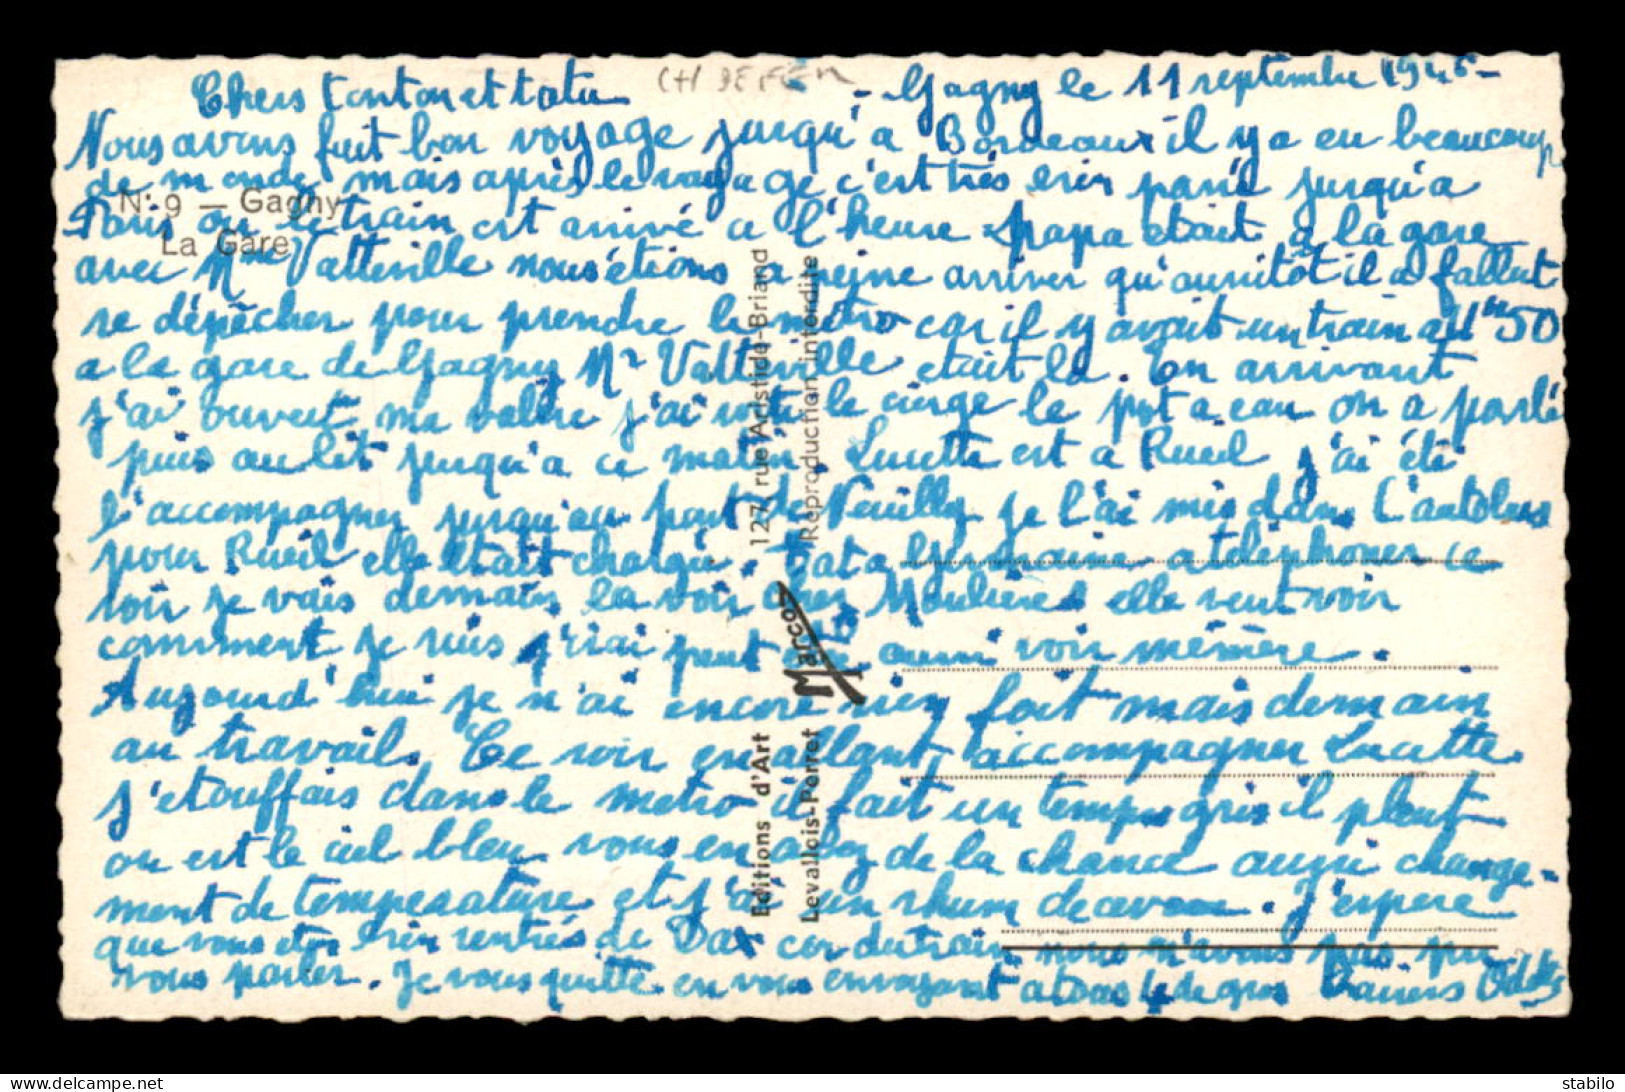 Chers tonton et tata - Gagny le 11 septembre
Nous avons fait bon voyage jusqu'à Bordeaux il y a eu beaucoup
de monde mais après le voyage c'est très bien passé jusqu'a
Paris ou le train est arrivé a l'heure papa etait a la gare
avec Mme Vatteville nous étions a peine arriver qu'aussitôt il a fallut
se dépêcher pour prendre le métro car il y avait un train a 50
a la gare de Gagny Mr Vatteville etait la. En arrivant
j'ai ouvert ma valise j'ai le cierge le pot a eau on a parlé
puis au lit jusqu'a ce matin. Lucette est a Rueil j'ai été
l'accompagner jusqu'au pont de Neuilly je l'ai mis dans l'autobus
pour Rueil elle était chargé. Tata Germaine a téléphoner ce
soir je vais demain la voir chez Moulières elle veut voir
comment je suis j'irai peut aussi voir mémère.
Aujourd'hui je n'ai encore rien fait mais demain
au travail. Ce soir en allant accompagner Lucette
j'etouffais dans le metro il fait un temps gris il pleut
ou est le ciel bleu vous en avez de la chance aussi change-
ment de temperature et j'ai un rhume de cerveau. J'espere
que vous etes bien rentrés de Dax car du train nous n'avons pas pu
vous parler. Je vous quitte en vous envoyant a tous 4 de gros Baisers Odette
N° 9 — Gagny
La Gare
Editions d'Art 127, rue Aristide-Briand
Levallois-Perret Marco Reproduction interdite
stabilo